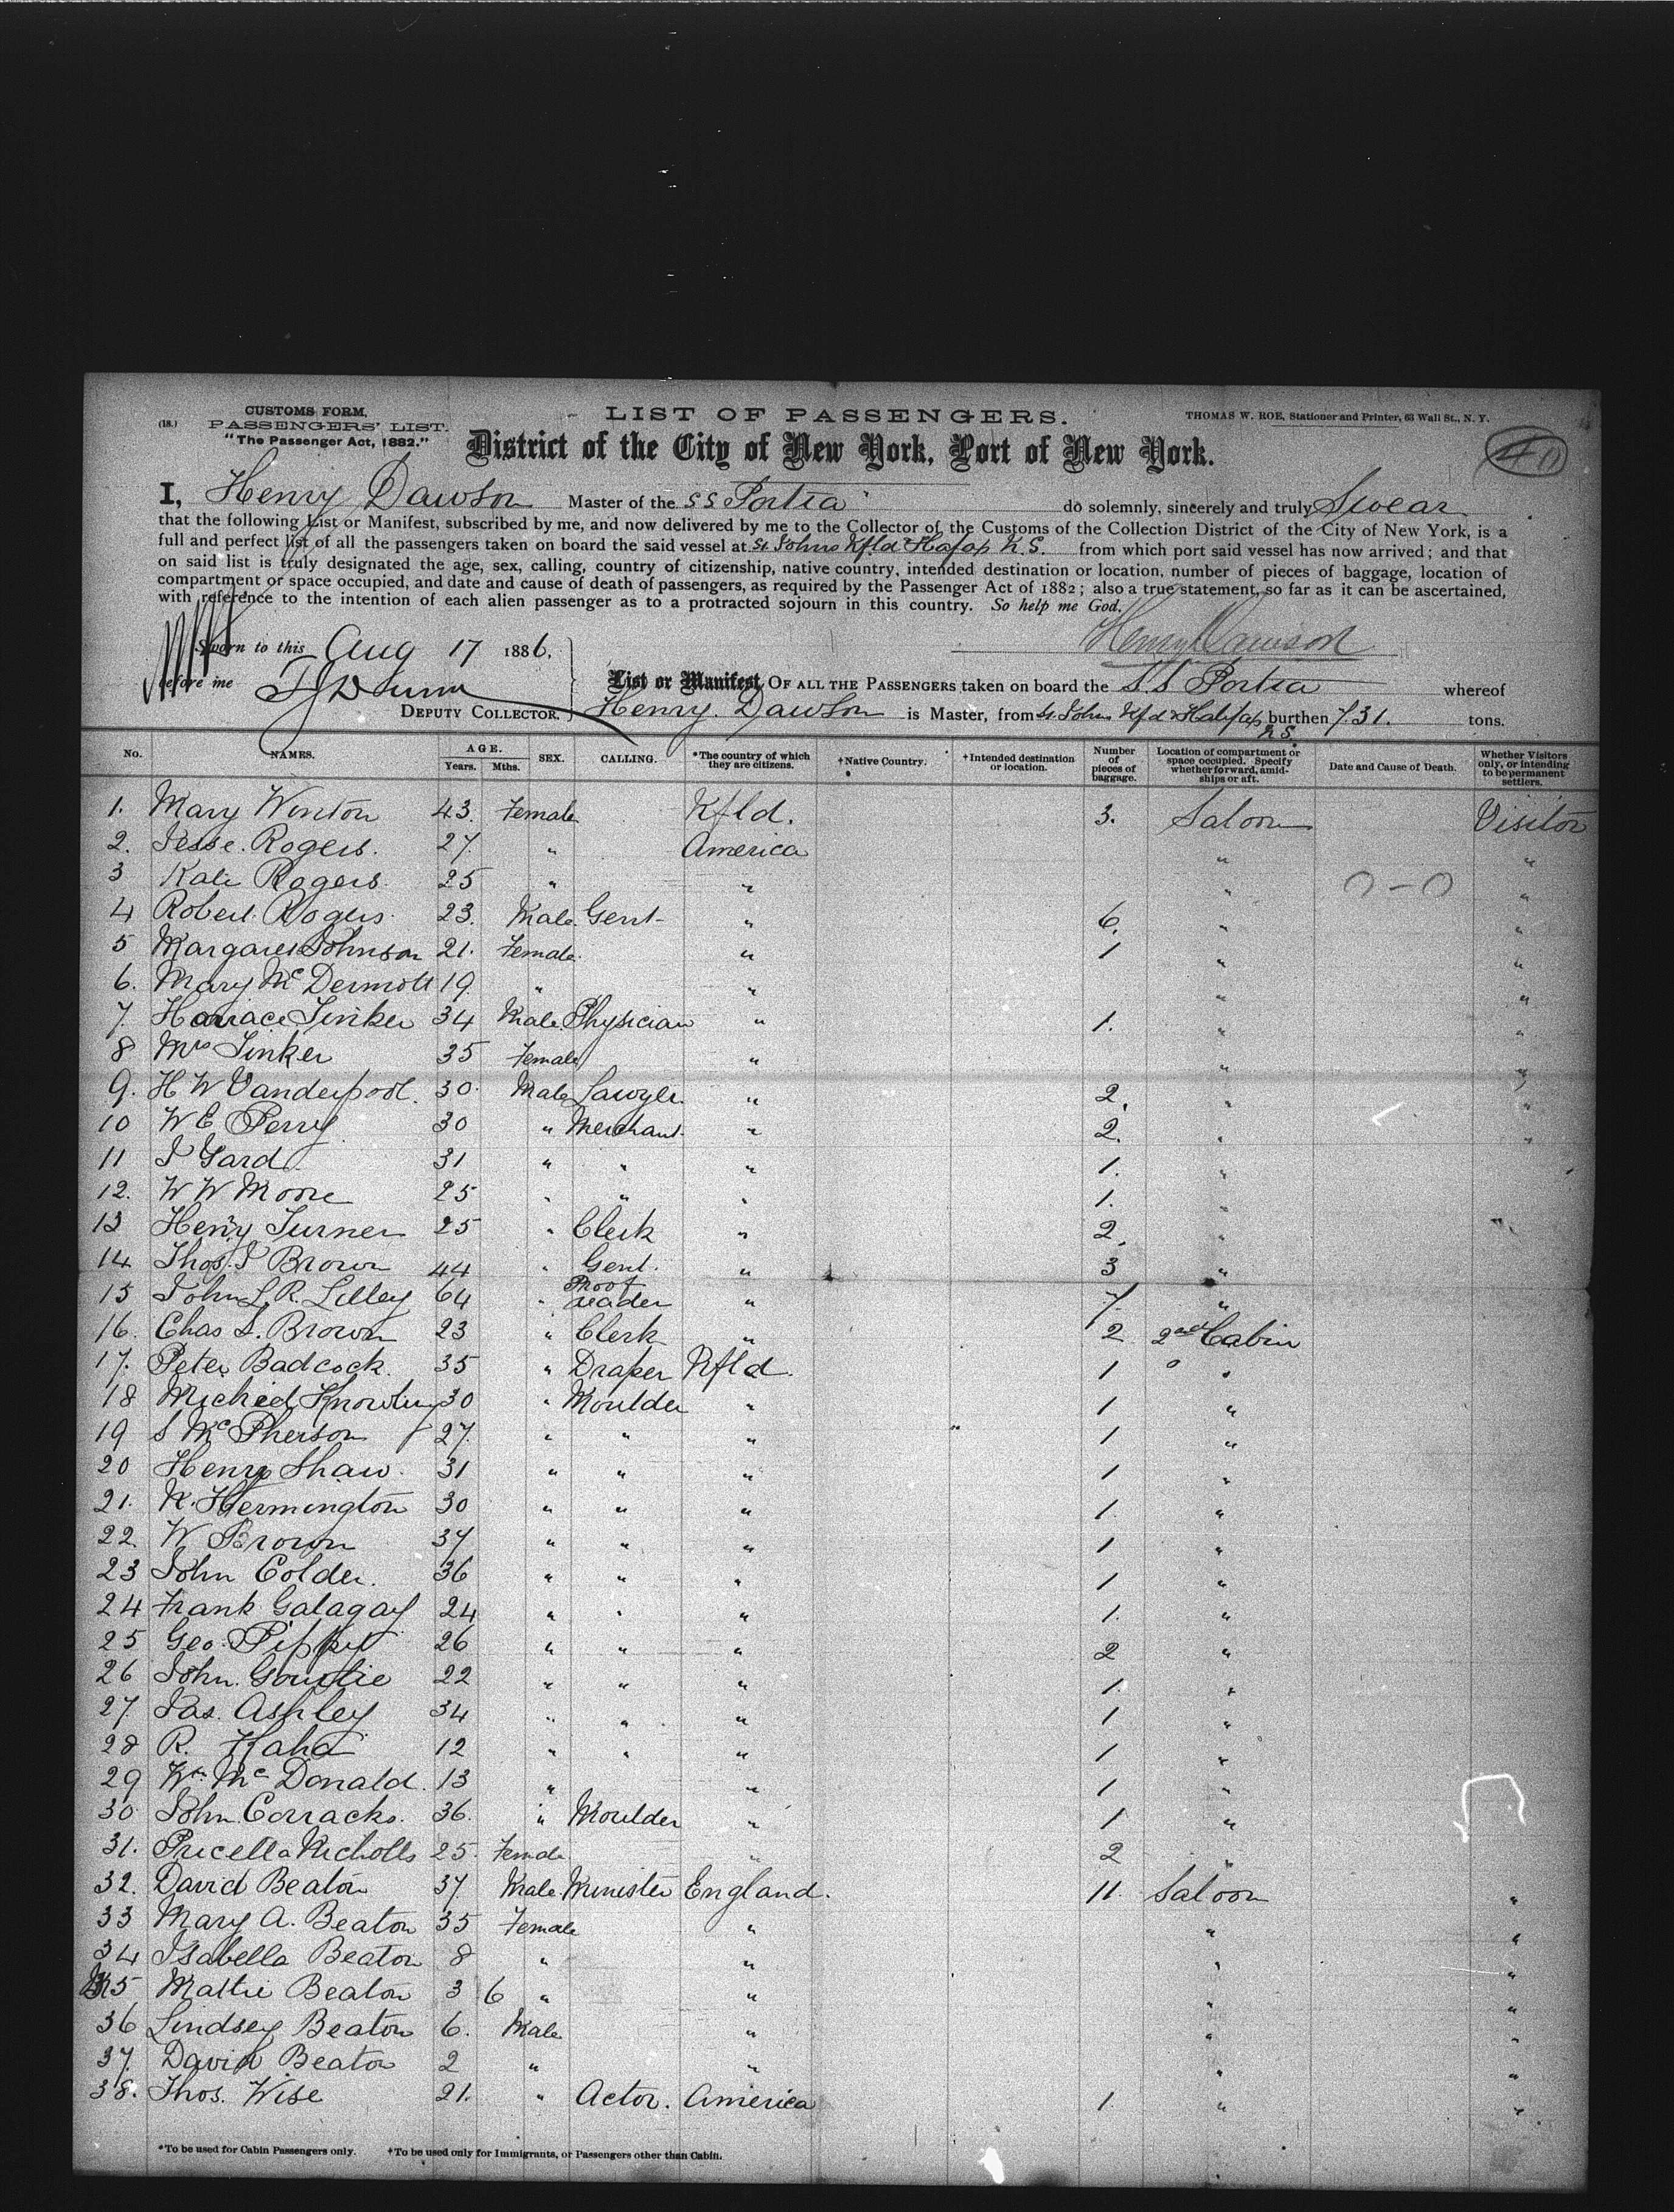 (18.)
CUSTOMS FORM,
PASSENGERS' LIST.
"The Passenger Act, 1882."
LIST OF PASSENGERS.
THOMAS W. ROE, Stationer and Printer, 63 Wall St., N. Y.
District of the City of New York, Port of New York.
40
I, Henry Dawson Master of the SS Portia do solemnly, sincerely and truly Swear
that the following List or Manifest, subscribed by me, and now delivered by me to the Collector of the Customs of the Collection District of the City of New York, is a
full and perfect list of all the passengers taken on board the said vessel at St Johns Nfld & N.S. from which port said vessel has now arrived; and that
on said list is truly designated the age, sex, calling, country of citizenship, native country, intended destination or location, number of pieces of baggage, location of
compartment or space occupied, and date and cause of death of passengers, as required by the Passenger Act of 1882; also a true statement, so far as it can be ascertained,
with reference to the intention of each alien passenger as to a protracted sojourn in this country. So help me God.
Henry Dawson
Sworn to this Aug 17 1886.
before me
DEPUTY COLLECTOR.
List or Manifest, OF ALL THE PASSENGERS taken on board the S.S Portia whereof
Henry. Dawson is Master, from St. Johns Nfd & Halifax N.S. burthen 731. tons.
No. NAMES. AGE. Years. Mths. SEX. CALLING. *The country of which they are citizens. †Native Country. †Intended destination or location. Number of pieces of baggage. Location of compartment or space occupied. Specify whether forward, amidships or aft. Date and Cause of Death. Whether Visitors only, or intending to be permanent settlers.
1. Mary Winton 43. Female Nfld. 3. Saloon Visitor
2. Jesse. Rogers. 27. " America " "
3 Kate Rogers. 25 " " " "
4 Robert. Rogers. 23. Male. Gent " 6. " "
5 Margaret Johnson 21. Female. " 1 " "
6. Mary McDermott 19 " " " "
7. Horrace Tinker 34 Male Physician " 1. " "
8 Mrs Tinker 35 Female " " "
9. H W Vanderpool. 30. Male Lawyer. " 2. " "
10 W E Perry 30 " Merchant. " 2. " "
11 J Gard 31 " " " 1. "
12. W W Moore 25 " " " 1. "
13 Henry Turner 25 " Clerk " 2. "
14 Thos. J Brown 44 " Gent. " 3 "
15 John L. R. Lilley 64 " Proof reader " 7 "
16. Chas S. Brown 23 " Clerk " 2 2nd Cabin
17. Peter Badcock. 35 " Draper Nfld. 1 "
18 Micheel Knowling 30 " Moulder " 1 "
19 S McPherson 27. " " " " 1 "
20 Henry Shaw. 31 " " " 1 "
21. N. Hermington 30 " " " 1. "
22. W Brown 37 " " " 1 "
23 John Colder. 36 " " " 1 "
24 Frank 24 " " " 1. "
25 Geo. Pippy 26 " " " 2 "
26 John. 22 " " " 1. "
27. Jas. Ashley 34 " " " 1 "
28 R. 12 " " " 1 "
29 Wm. McDonald. 13 " " 1 "
30 John. Corracks. 36. " Moulder " 1 "
31. Pricella Nicholls 25. Female " 2 "
32. David Beaton 37 Male. Minister England. 11. Saloon "
33 Mary A. Beaton 35 Female " " "
34 Isabella Beaton 8 " " " "
35 Mattie Beaton 3 6 " " " "
36 Lindsey Beaton 6. Male " " "
37. David Beaton 2 " " " "
38. Thos. Wise 21. " Actor. America 1. " "
*To be used for Cabin Passengers only. †To be used only for Immigrants, or Passengers other than Cabin.